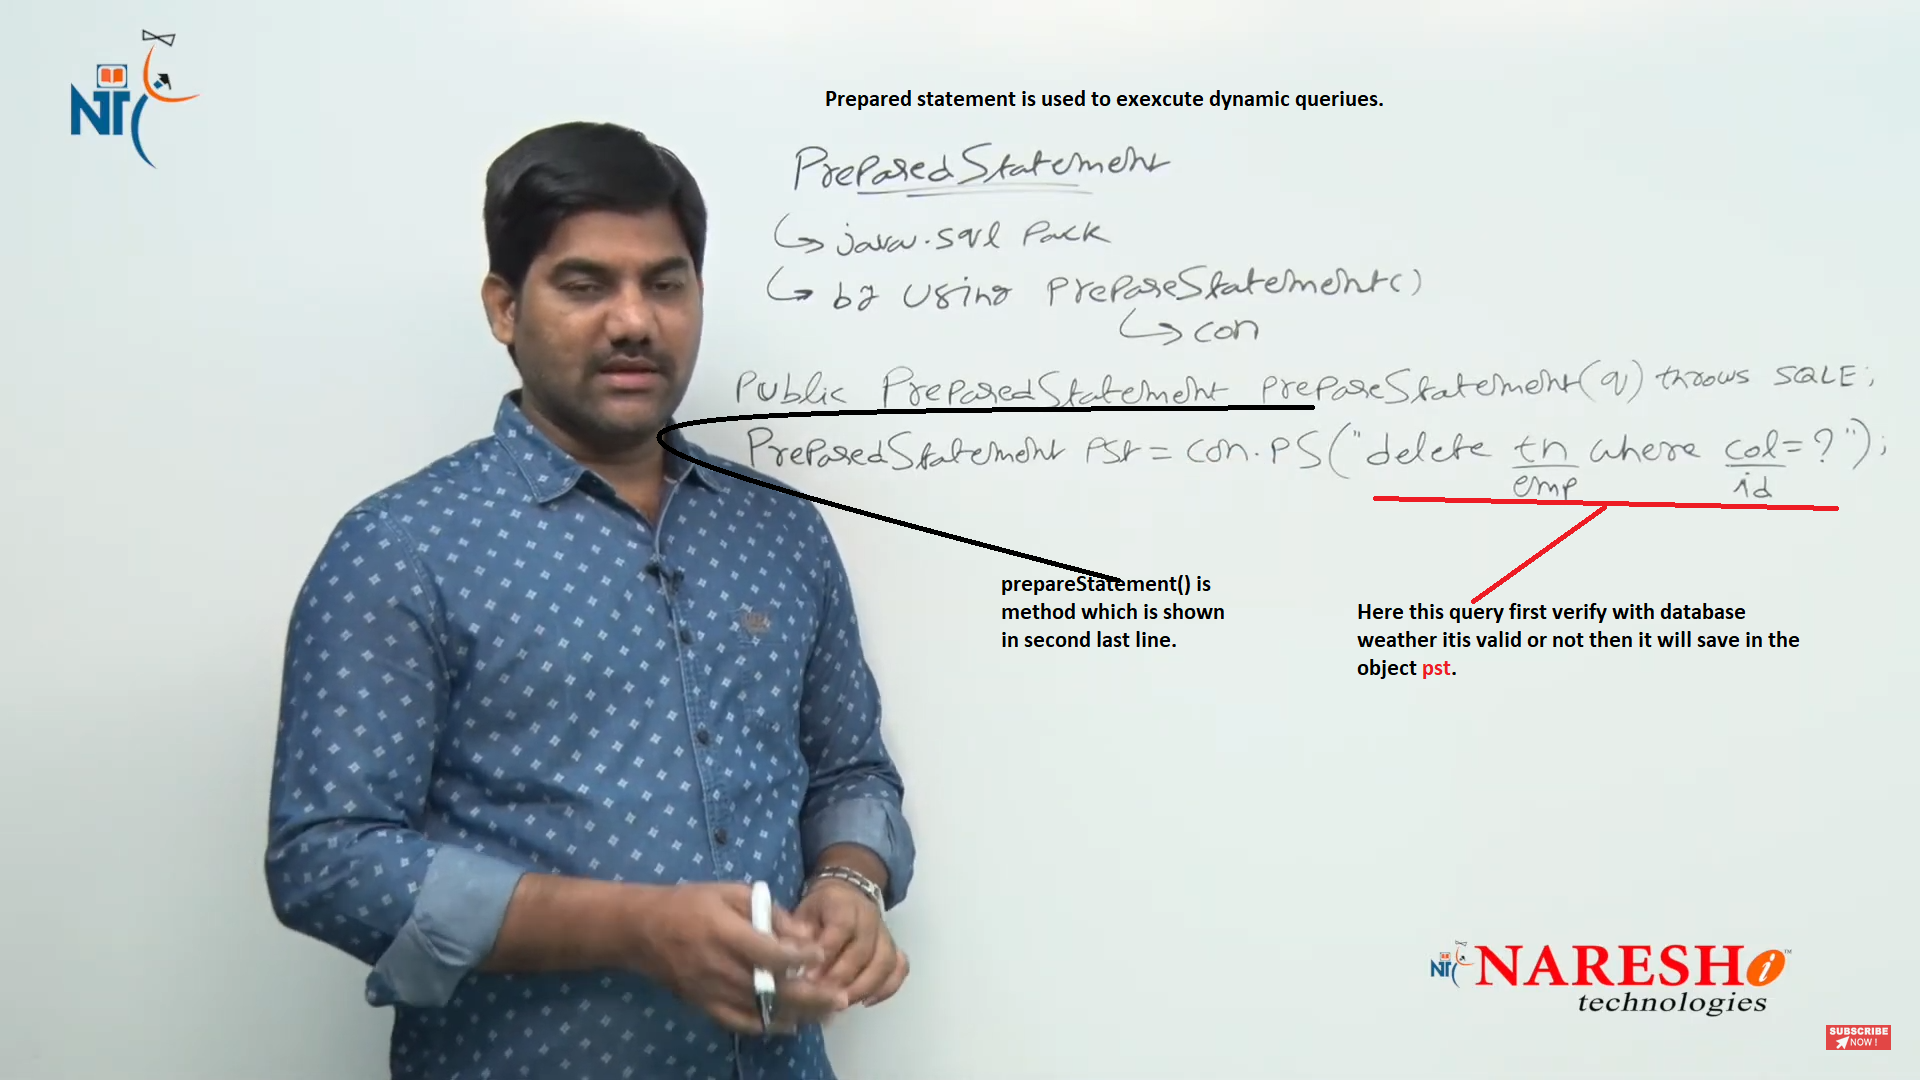 NT
Prepared statement is used to exexcute dynamic queriues.
PreparedStatement
java.sql Pack
by using PrepareStatement()
con
Public PreparedStatement PrepareStatement(q) throws SQLE;
PreparedStatement Pst = con.PS("delete tn where col=?");
emp id
prepareStatement() is
method which is shown
in second last line.
Here this query first verify with database
weather itis valid or not then it will save in the
object pst.
NT NARESH i ™
technologies
SUBSCRIBE
NOW !